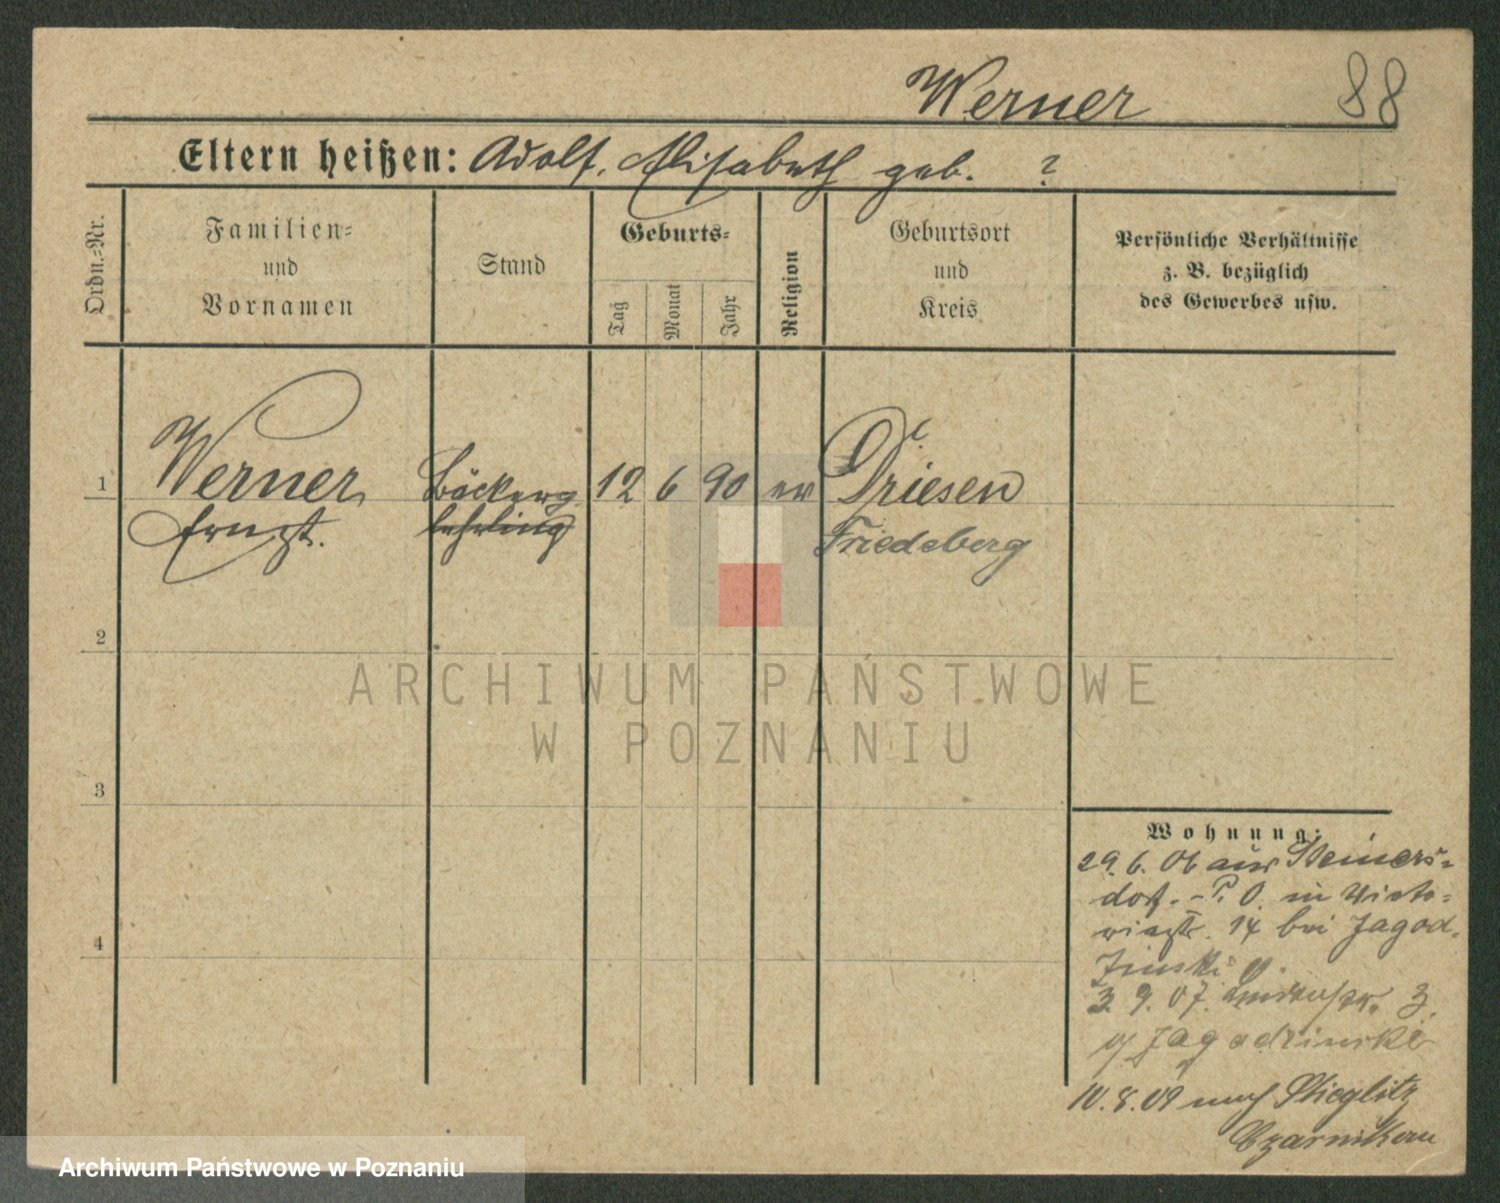 Werner 88
Eltern heißen: Adolf, Elisabeth geb. ?
Ordn.-Nr.
Familien-
und
Vornamen
Stand
Geburts-
Tag
Monat
Jahr
Religion
Geburtsort
und
Kreis
Persönliche Verhältnisse
z. B. bezüglich
des Gewerbes usw.
1 Werner, Bäckerg. 12 6 90 ev Driesen
Ernst. lehrling Friedeberg
2
3
4
ARCHIWUM PAŃSTWOWE
W POZNANIU
Wohnung:
29.6.06 aus Steiners-
dorf. - P. O. in Victo-
riastr. 14 bei Jagod-
zinski
3. 9. 07. 3.
Jagodzinski
10.8.09 nach Stieglitz
Czarnikau
Archiwum Państwowe w Poznaniu